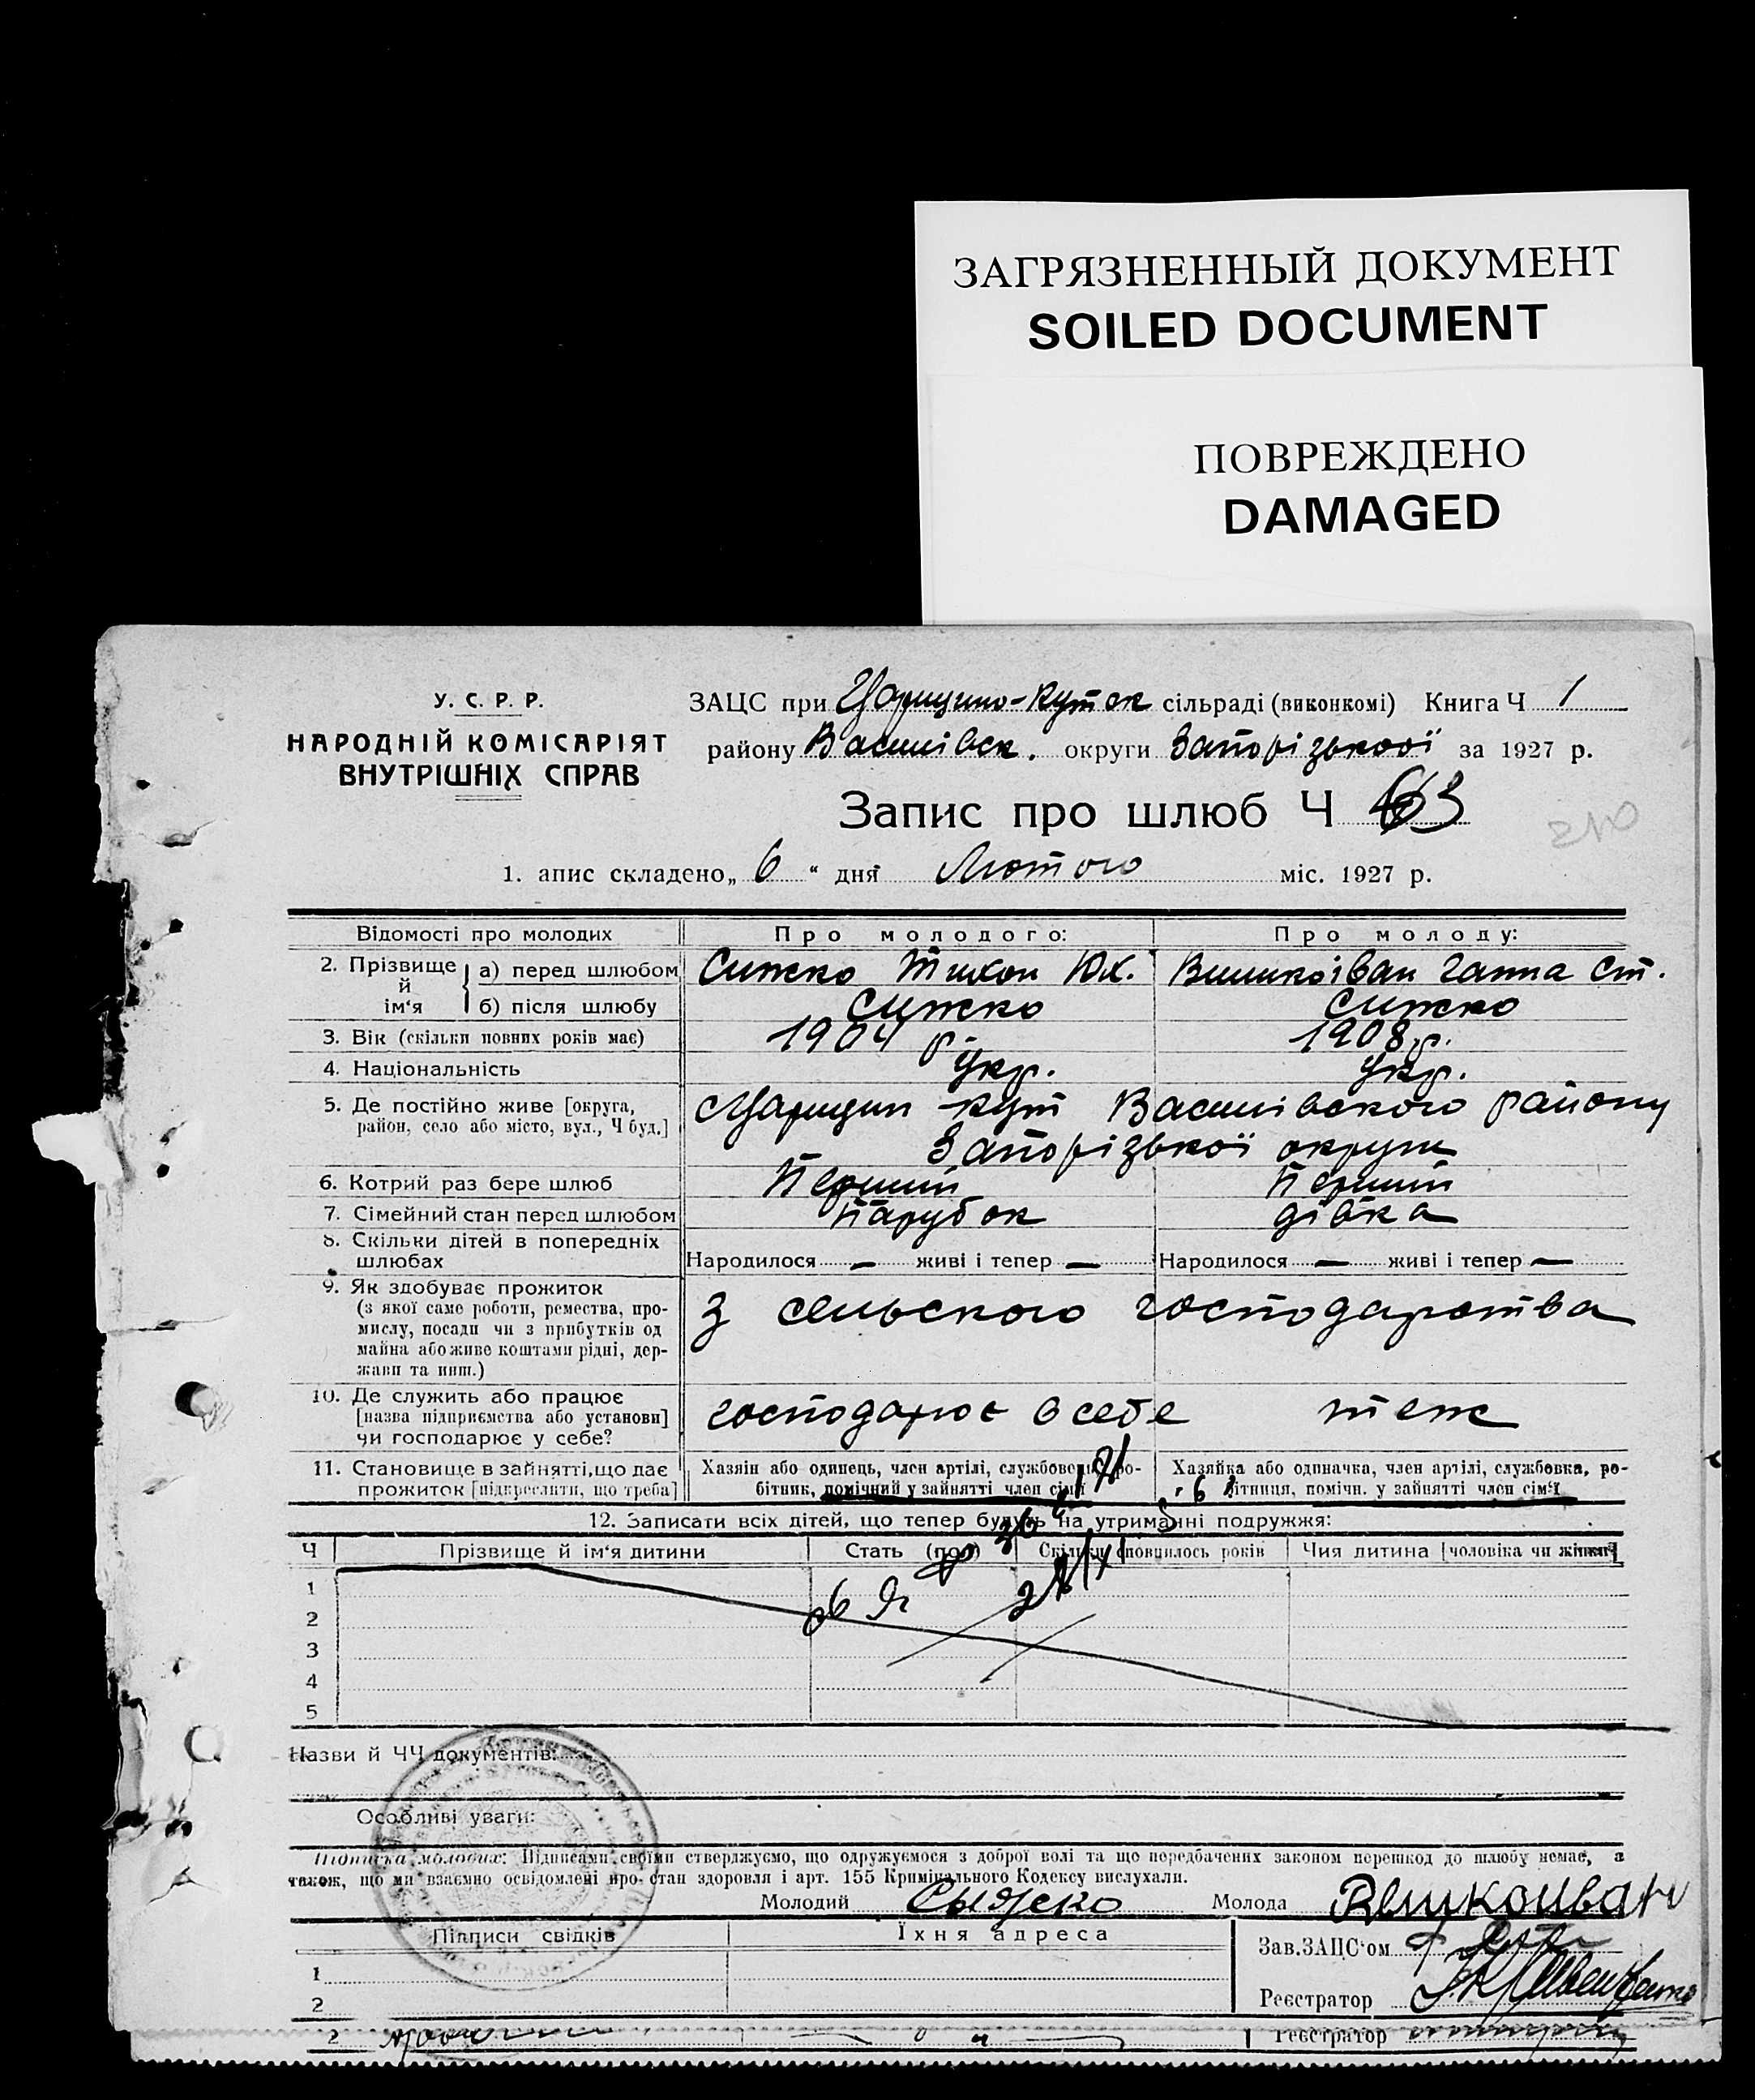 ЗАГРЯЗНЕННЫЙ ДОКУМЕНТ
SOILED DOCUMENT
ПОВРЕЖДЕНО
DAMAGED
У. С. Р. Р.
НАРОДНІЙ КОМІСАРІЯТ
ВНУТРІШНІХ СПРАВ
ЗАЦС при Царицино-Кутск сільраді (виконкомі) Книга Ч 1
району Василівск. округи Запорізької за 1927 р.
Запис про шлюб Ч 63
210
1. апис складено „ 6 “ дня Лютого міс. 1927 р.
Відомості про молодих Про молодого: Про молоду:
2. Прізвище й ім‘я а) перед шлюбом Сижко Тихон Юх. Вишкоіван Ганна Ст.
б) після шлюбу Сижко Сижко
3. Вік (скільки повних років має) 1904 р. 1908 р.
4. Національність Укр. Укр.
5. Де постійно живе [округа, Царицин Кут Василівского району
район, село або місто, вул., Ч буд.] Запорізької округи
6. Котрий раз бере шлюб Перший Перший
7. Сімейний стан перед шлюбом Парубок дівка
8. Скільки дітей в попередніх
шлюбах Народилося — живі і тепер — Народилося — живі і тепер —
9. Як здобуває прожиток
(з якої саме роботи, ремества, про- З сельского господарства
мислу, посади чи з прибутків од
майна або живе коштами рідні, дер-
жави та инш.)
10. Де служить або працює
[назва підприємства або установи] господарює в себе теж
чи господарює у себе?
11. Становище в зайнятті, що дає Хазяїн або одинець, член артілі, службовець, ро- Хазяйка або одиначка, член артілі, службовка, ро-
прожиток [підкреслити, що треба] бітник, помічний у зайнятті член сім‘ї бітниця, помічн. у зайнятті член сім‘ї
12. Записати всіх дітей, що тепер будуть на утриманні подружжя:
Ч Прізвище й ім‘я дитини Стать (пол) Скільки сповнилось років Чия дитина [чоловіка чи жінки]
1
2
3
4
5
Назви й ЧЧ документів:
Особливі уваги:
Підписка молодих: Підписами своїми стверджуємо, що одружуємося з доброї волі та що передбачених законом перешкод до шлюбу немає, а
також, що ми взаємно освідомлені про стан здоровля і арт. 155 Кримінального Кодексу вислухали.
Молодий Сыжско Молода Вешкоиван
Підписи свідків Їхня адреса Зав. ЗАЦС‘ом
1
2 Реєстратор
2 Реєстратор